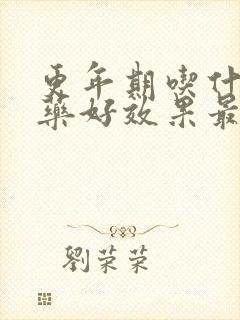 更年期喫什
藥好效果最
劉荣荣